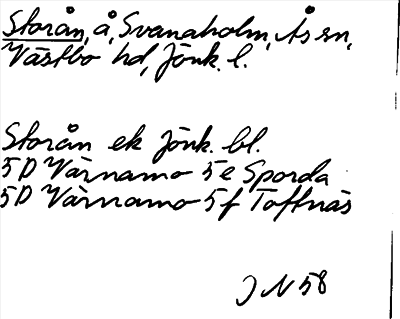 Storån, å, Svanaholm, Ås sn,
Västbo hd, Jönk. l.
Storån ek Jönk. bl.
5D Värnamo 5e Sporda
5D Värnamo 5f Toftnäs
J N 58